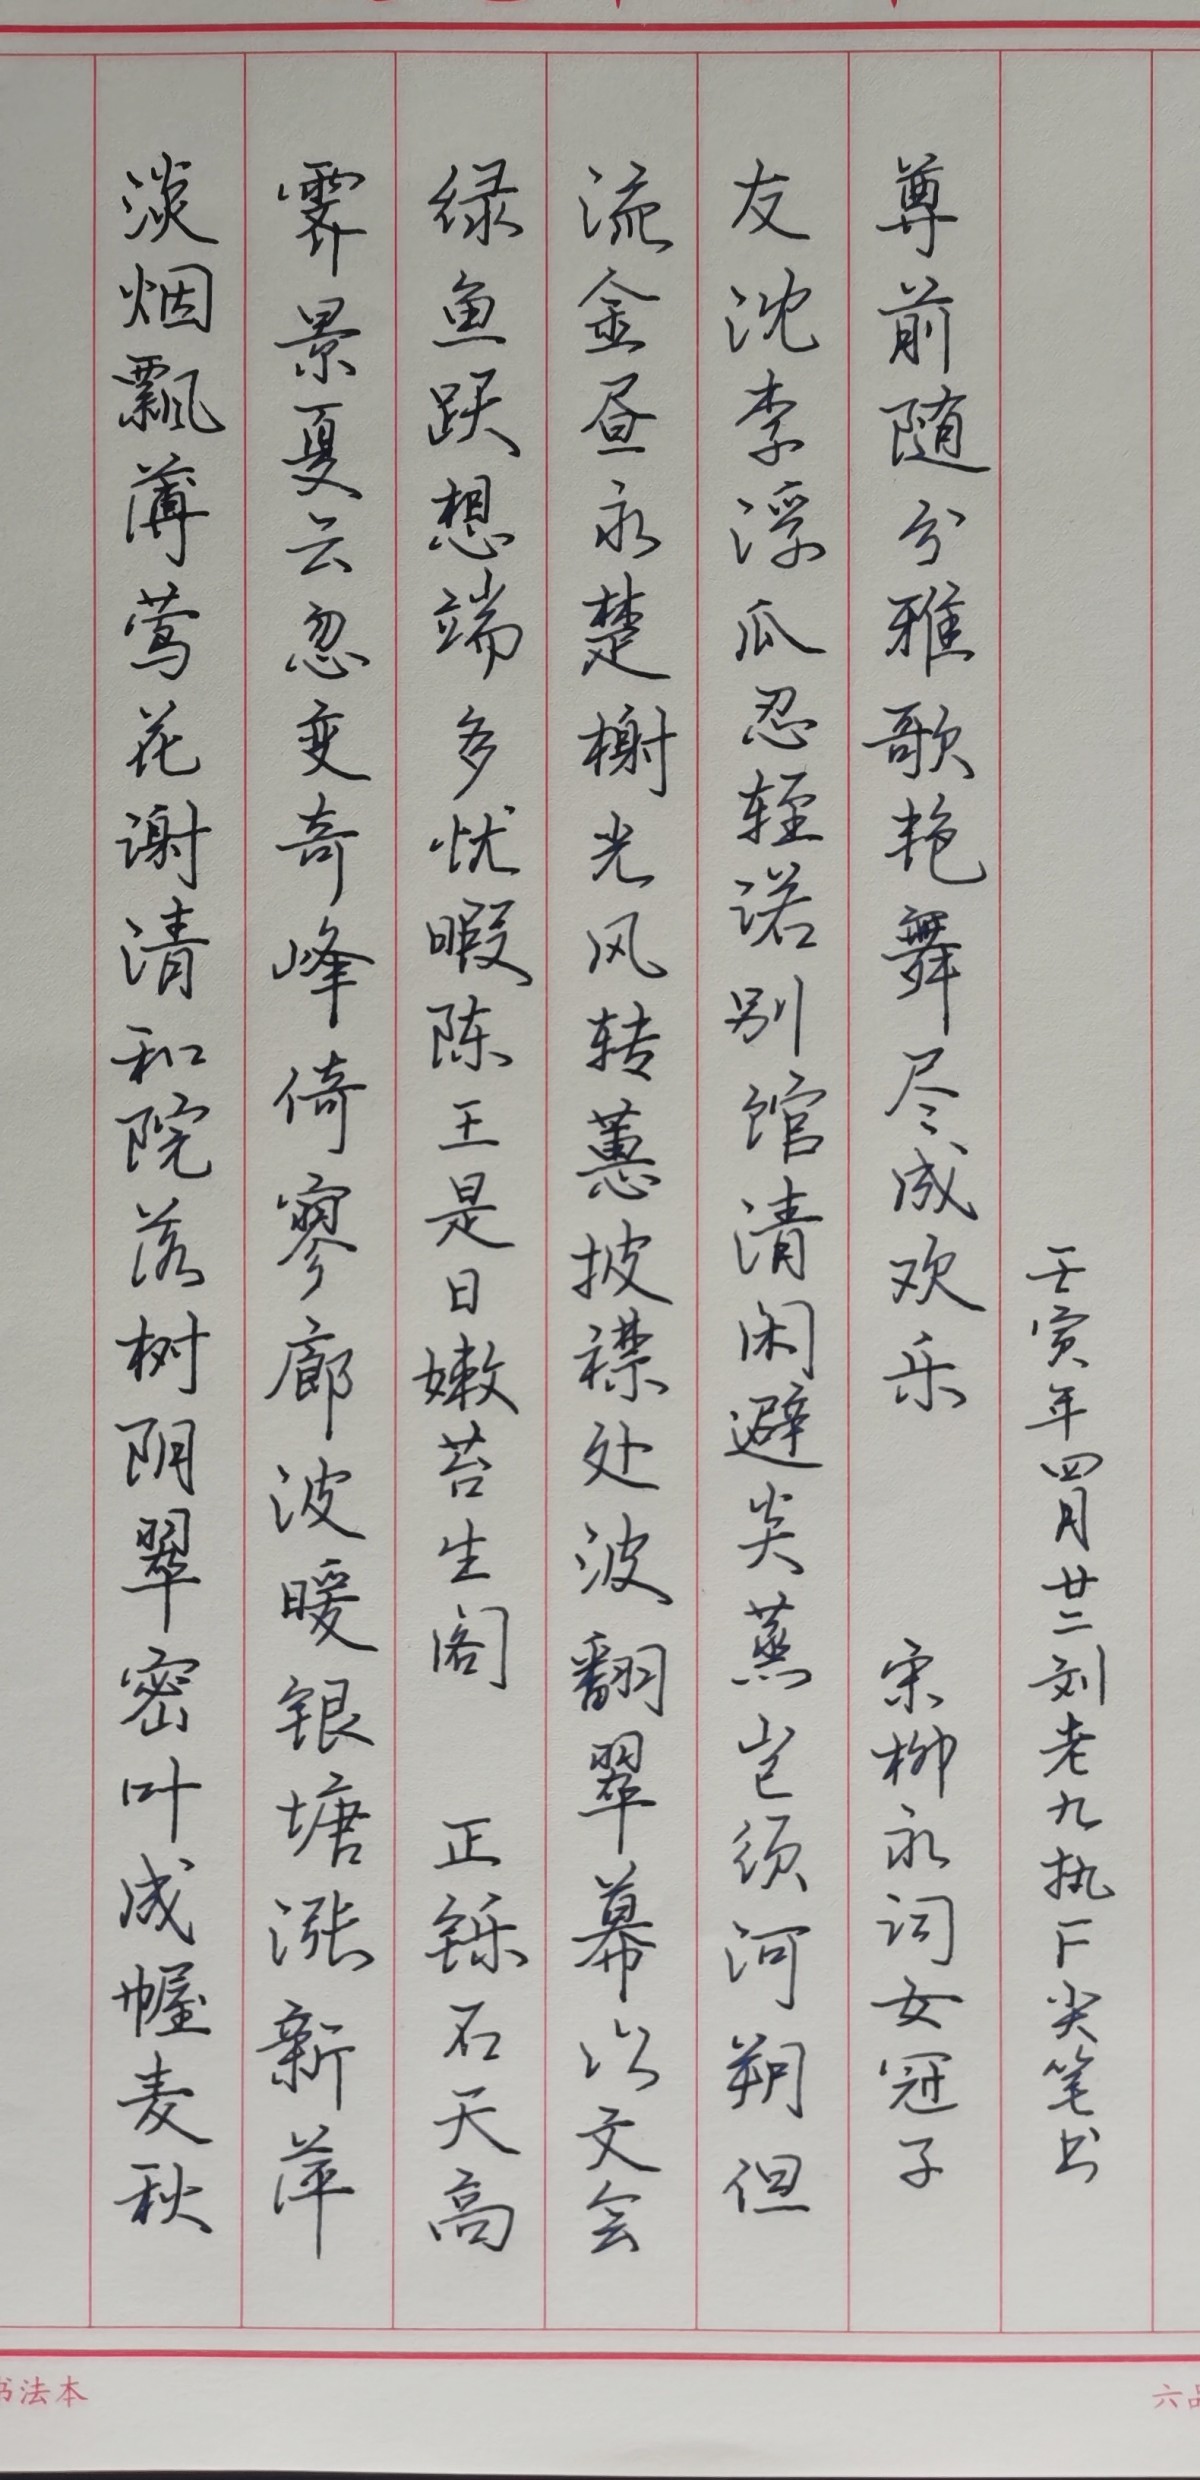 淡烟飘薄莺花谢清和院落树阴翠密叶成幄麦秋
霁景夏云忽变奇峰倚寥廊波暖银塘涨新萍
绿鱼跃想端多忧暇陈王是日嫩苔生阁 正铄石天高
流金昼永楚榭光风转蕙披襟处波翻翠幕以文会
友沈李浮瓜忍轻诺别馆清闲避炎蒸岂须河朔但
尊前随分雅歌艳舞尽成欢乐 宋柳永词女冠子
壬寅年四月廿二刘老九执F尖笔书
书法本
六品